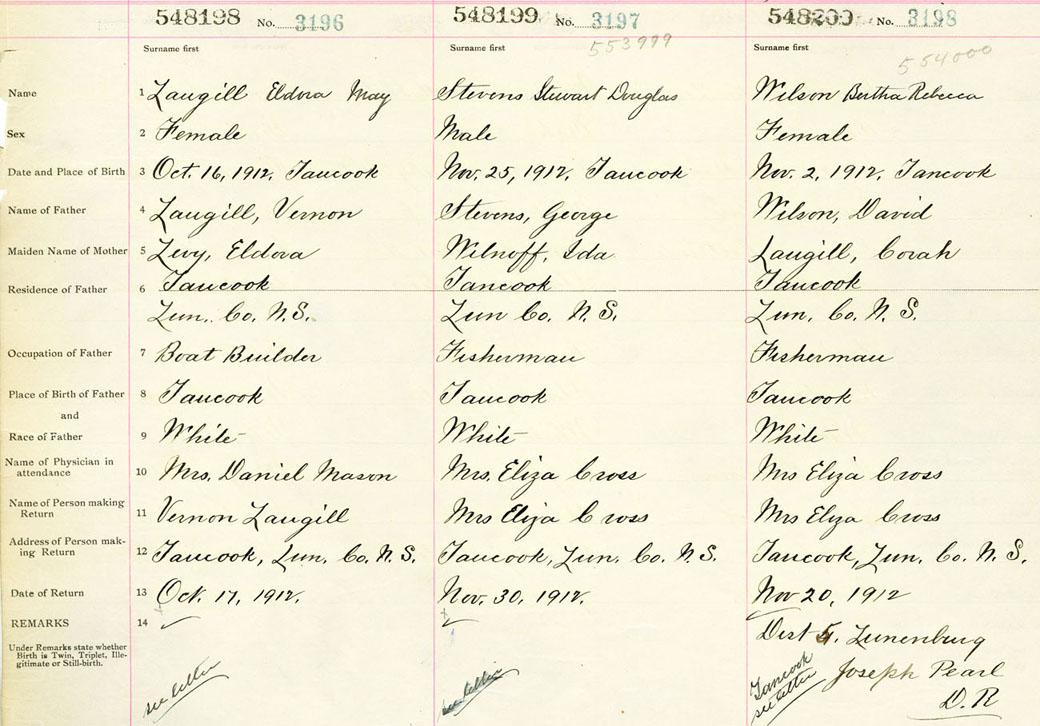 548198 No. 3196 548199 No. 3197 548200 No. 3198
Surname first Surname first 553999 Surname first 554000
Name 1 Langill Eldora May Stevens Stewart Douglas Wilson Bertha Rebecca
Sex 2 Female Male Female
Date and Place of Birth 3 Oct. 16, 1912, Tancook Nov. 25, 1912, Tancook Nov. 2, 1912, Tancook
Name of Father 4 Langill, Vernon Stevens, George Wilson, David
Maiden Name of Mother 5 Levy, Eldora Wilnoff, Ida Langill, Corah
Residence of Father 6 Tancook Tancook Tancook
Lun. Co. N.S. Lun Co. N.S. Lun. Co. N.S.
Occupation of Father 7 Boat Builder Fisherman Fisherman
Place of Birth of Father 8 Tancook Tancook Tancook
and
Race of Father 9 White White White
Name of Physician in
attendance 10 Mrs. Daniel Mason Mrs. Eliza Cross Mrs Eliza Cross
Name of Person making
Return 11 Vernon Langill Mrs Eliza Cross Mrs Eliza Cross
Address of Person mak-
ing Return 12 Tancook, Lun. Co. N.S. Tancook, Lun. Co. N.S. Tancook, Lun. Co. N.S.
Date of Return 13 Oct. 17, 1912. Nov. 30, 1912. Nov 20, 1912
REMARKS 14 Dist 5. Lunenburg
Under Remarks state whether
Birth is Twin, Triplet, Ille-
gitimate or Still-birth.
Joseph Pearl
D.R
see letter see letter Tancook
see letter